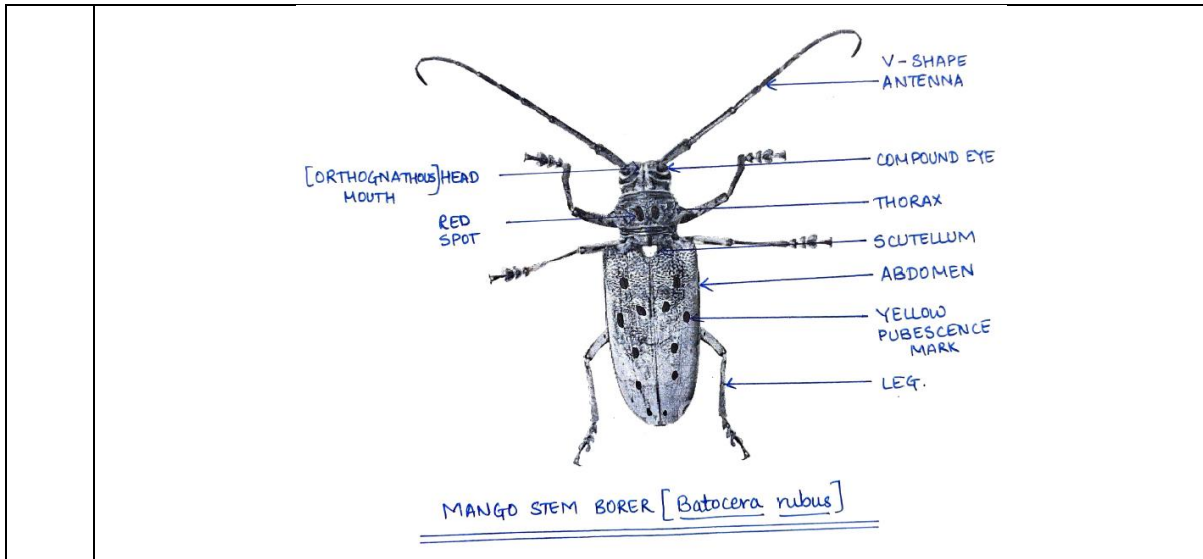 V-SHAPE
ANTENNA
COMPOUND EYE
[ORTHOGNATHOUS] HEAD
MOUTH
THORAX
RED
SPOT
SCUTELLUM
ABDOMEN
YELLOW
PUBESCENCE
MARK
LEG.
MANGO STEM BORER [Batocera rubus]